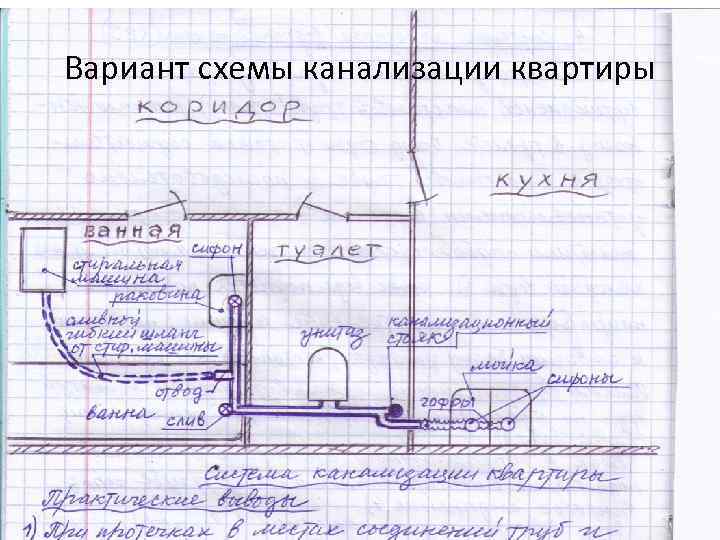 Вариант схемы канализации квартиры
коридор
кухня
ванная
туалет
сифон
стиральная
машина
раковина
сливной
гибкий шланг
от стир. машины
унитаз
канализационный
стояк
мойка
сифоны
отвод
гофры
ванна
слив
Система канализации квартиры
Практические выводы
1) При протечках в местах соединений труб и